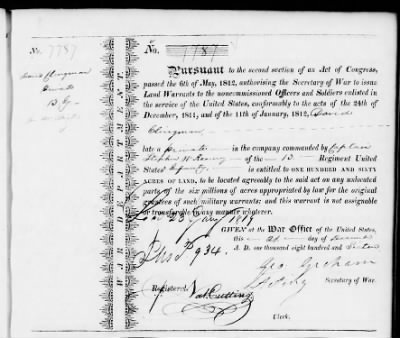 No. 7787
No. 7787
David Clingman
Private
13
WAR DEPARTMENT.
Pursuant to the second section of an Act of Congress,
passed the 6th of May, 1812, authorising the Secretary of War to issue
Land Warrants to the noncommissioned Officers and Soldiers enlisted in
the service of the United States, conformably to the acts of the 24th of
December, 1811, and of the 11th of January, 1812, David
Clingman
late a private in the company commanded by Captain
Stephen of the 13 Regiment United
States' Infantry is entitled to ONE HUNDRED AND SIXTY
ACRES OF LAND, to be located agreeably to the said act on any unlocated
parts of the six millions of acres appropriated by law for the original
grantees of such military warrants; and this warrant is not assignable
or transferable in any manner whatever.
23 Jany 1819
GIVEN at the War Office of the United States,
this day of
A. D. one thousand eight hundred and
934.
Geo. Graham
Secretary of War.
Registered, Nat Cutting
Clerk.